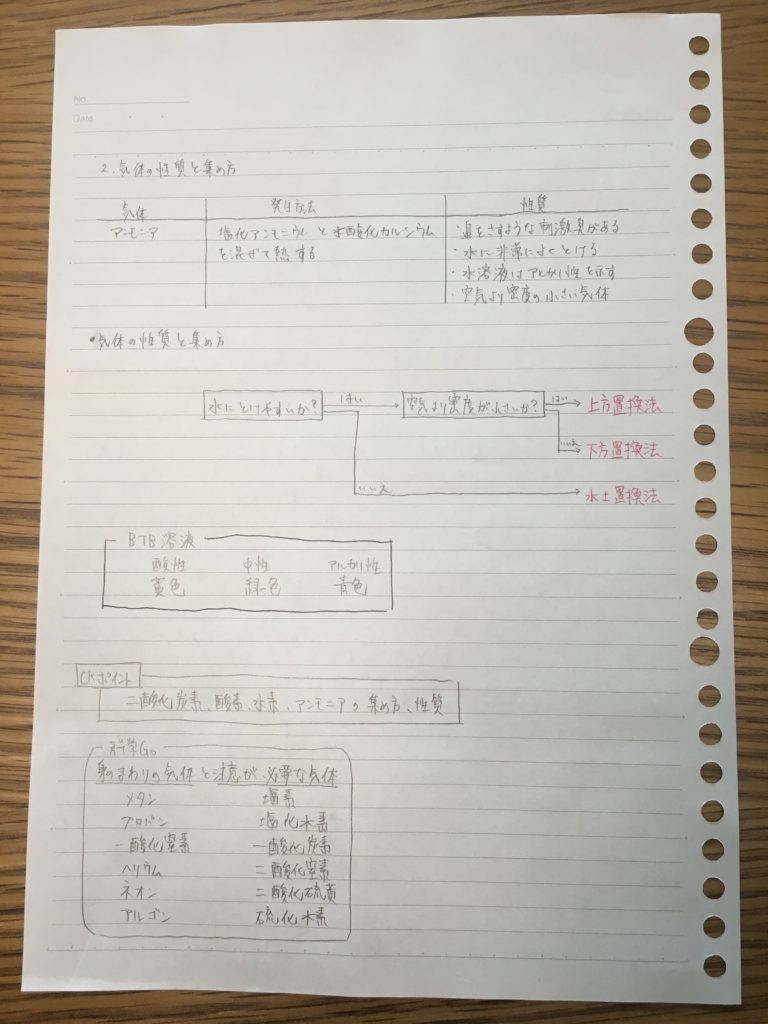 No.
Date
2.気体の性質と集め方
気体 発生方法 性質
アンモニア 塩化アンモニウムと水酸化カルシウム ・鼻をさすような刺激臭がある
を混ぜて熱する ・水に非常によくとける
・水溶液はアルカリ性を示す
・空気より密度の小さい気体
•気体の性質と集め方
水にとけやすいか? はい 空気より密度が小さいか? はい 上方置換法
いいえ 下方置換法
いいえ 水上置換法
BTB溶液
酸性 中性 アルカリ性
黄色 緑色 青色
CKポイント
二酸化炭素、酸素、水素、アンモニアの集め方、性質
科学Go
身のまわりの気体と注意が必要な気体
メタン 塩素
プロパン 塩化水素
一酸化窒素 一酸化炭素
ヘリウム 二酸化窒素
ネオン 二酸化硫黄
アルゴン 硫化水素